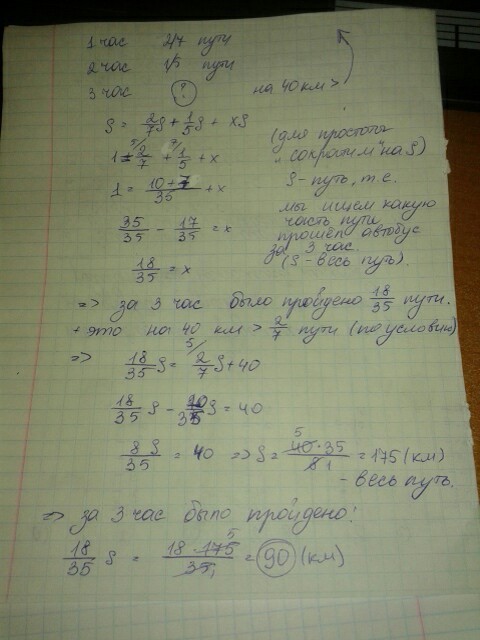 1 час 2/7 пути
2 час 1/5 пути
3 час ? на 40 км >
S = 2/7 S + 1/5 S + xS
(для простоты „сократим" на S)
1 = 2/7 + 1/5 + x
S - путь, т.е.
1 = 10+7/35 + x
мы ищем какую
часть пути
35/35 - 17/35 = x
прошёл автобус
за 3 час.
18/35 = x
(S - весь путь).
=> за 3 час было пройдено 18/35 пути.
+ это на 40 км > 2/7 пути (по условию)
=> 18/35 S = 2/7 S + 40
18/35 S - 10/35 S = 40
8S/35 = 40 => S = 40·35/8 = 175 (км)
- весь путь.
=> за 3 час было пройдено:
18/35 S = 18·175/35 = 90 (км)